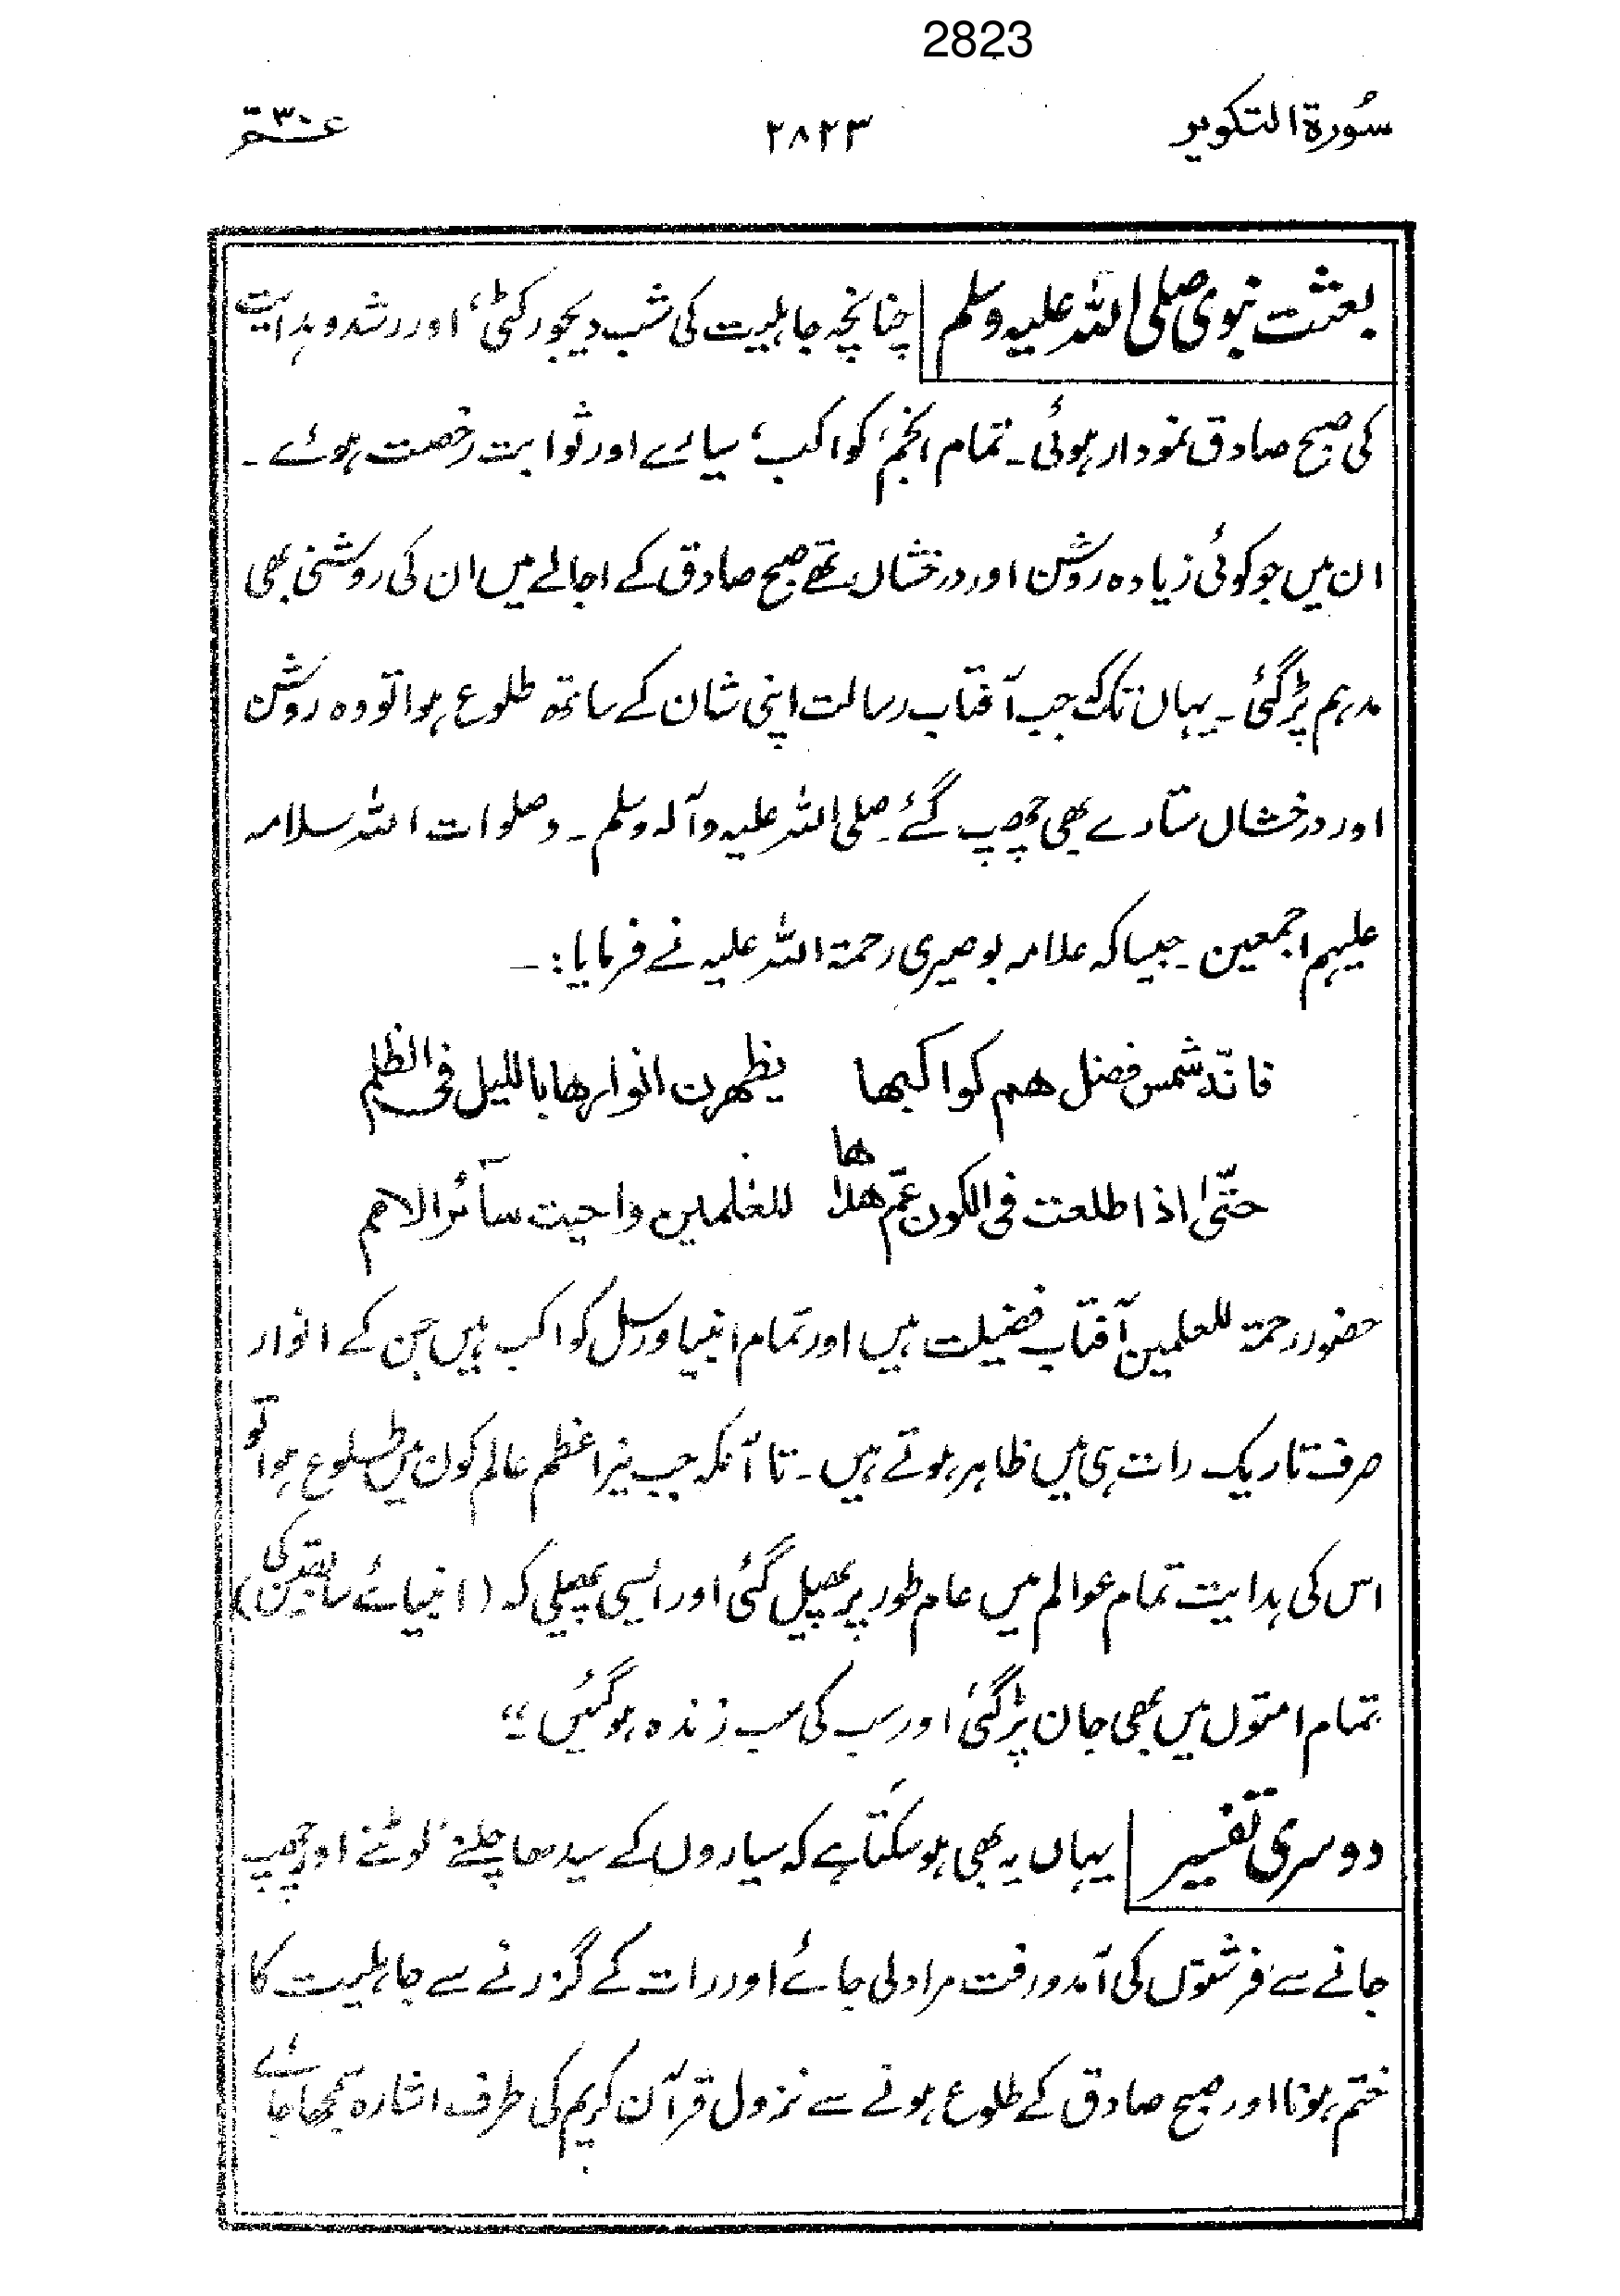 2823
سُورة التکویر ۲۸۲۳ عــم ۳۰
بعثت نبوی صلی اللہ علیہ وسلم چنانچہ جاہلیت کی شب دیجور کٹی، اور رشد و ہدایت
کی صبح صادق نمودار ہوئی۔ تمام انجم، کواکب، سیارے اور ثوابت رخصت ہوئے۔
ان میں جو کوئی زیادہ روشن اور درخشاں تھے صبح صادق کے اجالے میں ان کی روشنی بھی
مدہم پڑگئی۔ یہاں تک جب آفتاب رسالت اپنی شان کے ساتھ طلوع ہوا تو وہ روشن
اور درخشاں ستارے بھی چھپ گئے۔ صلی اللہ علیہ وآلہ وسلم۔ وصلوات اللہ سلامہ
علیہم اجمعین۔ جیسا کہ علامہ بوصیری رحمۃ اللہ علیہ نے فرمایا:۔
فانّہ شمس فضل هم کواکبها یظهرن انوارها باللیل فی الظلم
حتّیٰ اذا طلعت فی الکون عمّ هداها للعٰلمین واحیت سآئر الامم
حضور رحمۃ للعلمین آفتاب فضیلت ہیں اور تمام انبیا ورسل کواکب ہیں جن کے انوار
صرف تاریک رات ہی میں ظاہر ہوتے ہیں۔ تا آنکہ جب نیر اعظم عالم کون میں طلوع ہوا تو
اس کی ہدایت تمام عوالم میں عام طور پر پھیل گئی اور ایسی پھیلی کہ (انبیائے سابقین کی)
تمام امتوں میں بھی جان پڑگئی اور سب کی سب زندہ ہوگئیں۔"
دوسری تفسیر یہاں یہ بھی ہوسکتا ہے کہ سیاروں کے سیدھا چلنے، لوٹنے اور چھپ
جانے سے فرشتوں کی آمدورفت مراد لی جائے اور رات کے گزرنے سے جاہلیت کا
ختم ہونا اور صبح صادق کے طلوع ہونے سے نزول قرآن کریم کی طرف اشارہ سمجھا جائے